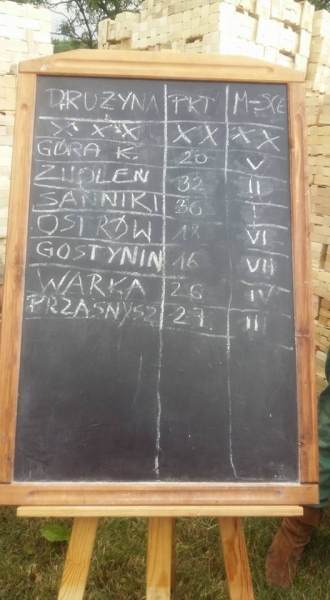 DRUŻYNA PKT M-SCE
X X X XX XX
GÓRA K. 20 V
ZWOLEŃ 32 II
SANNIKI 36 I
OSTRÓW 18 VI
GOSTYNIN 16 VII
WARKA 26 IV
PRZASNYSZ 27 III